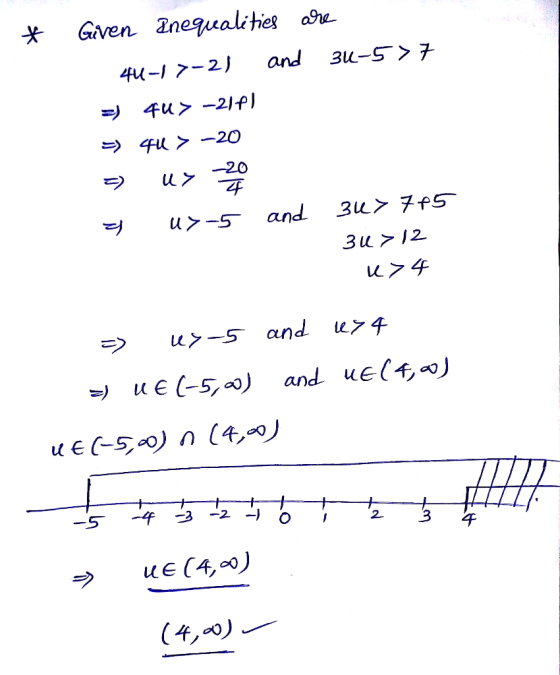 * Given Inequalities are
4u-1 >-21 and 3u-5>7
⇒ 4u> -21+1
⇒ 4u > -20
⇒ u> -20/4
⇒ u>-5 and 3u> 7+5
3u >12
u>4
⇒ u>-5 and u>4
⇒ u∈(-5,∞) and u∈(4,∞)
u∈(-5,∞) ∩ (4,∞)
-5 -4 -3 -2 -1 0 1 2 3 4
⇒ u∈(4,∞)
(4,∞) ✓